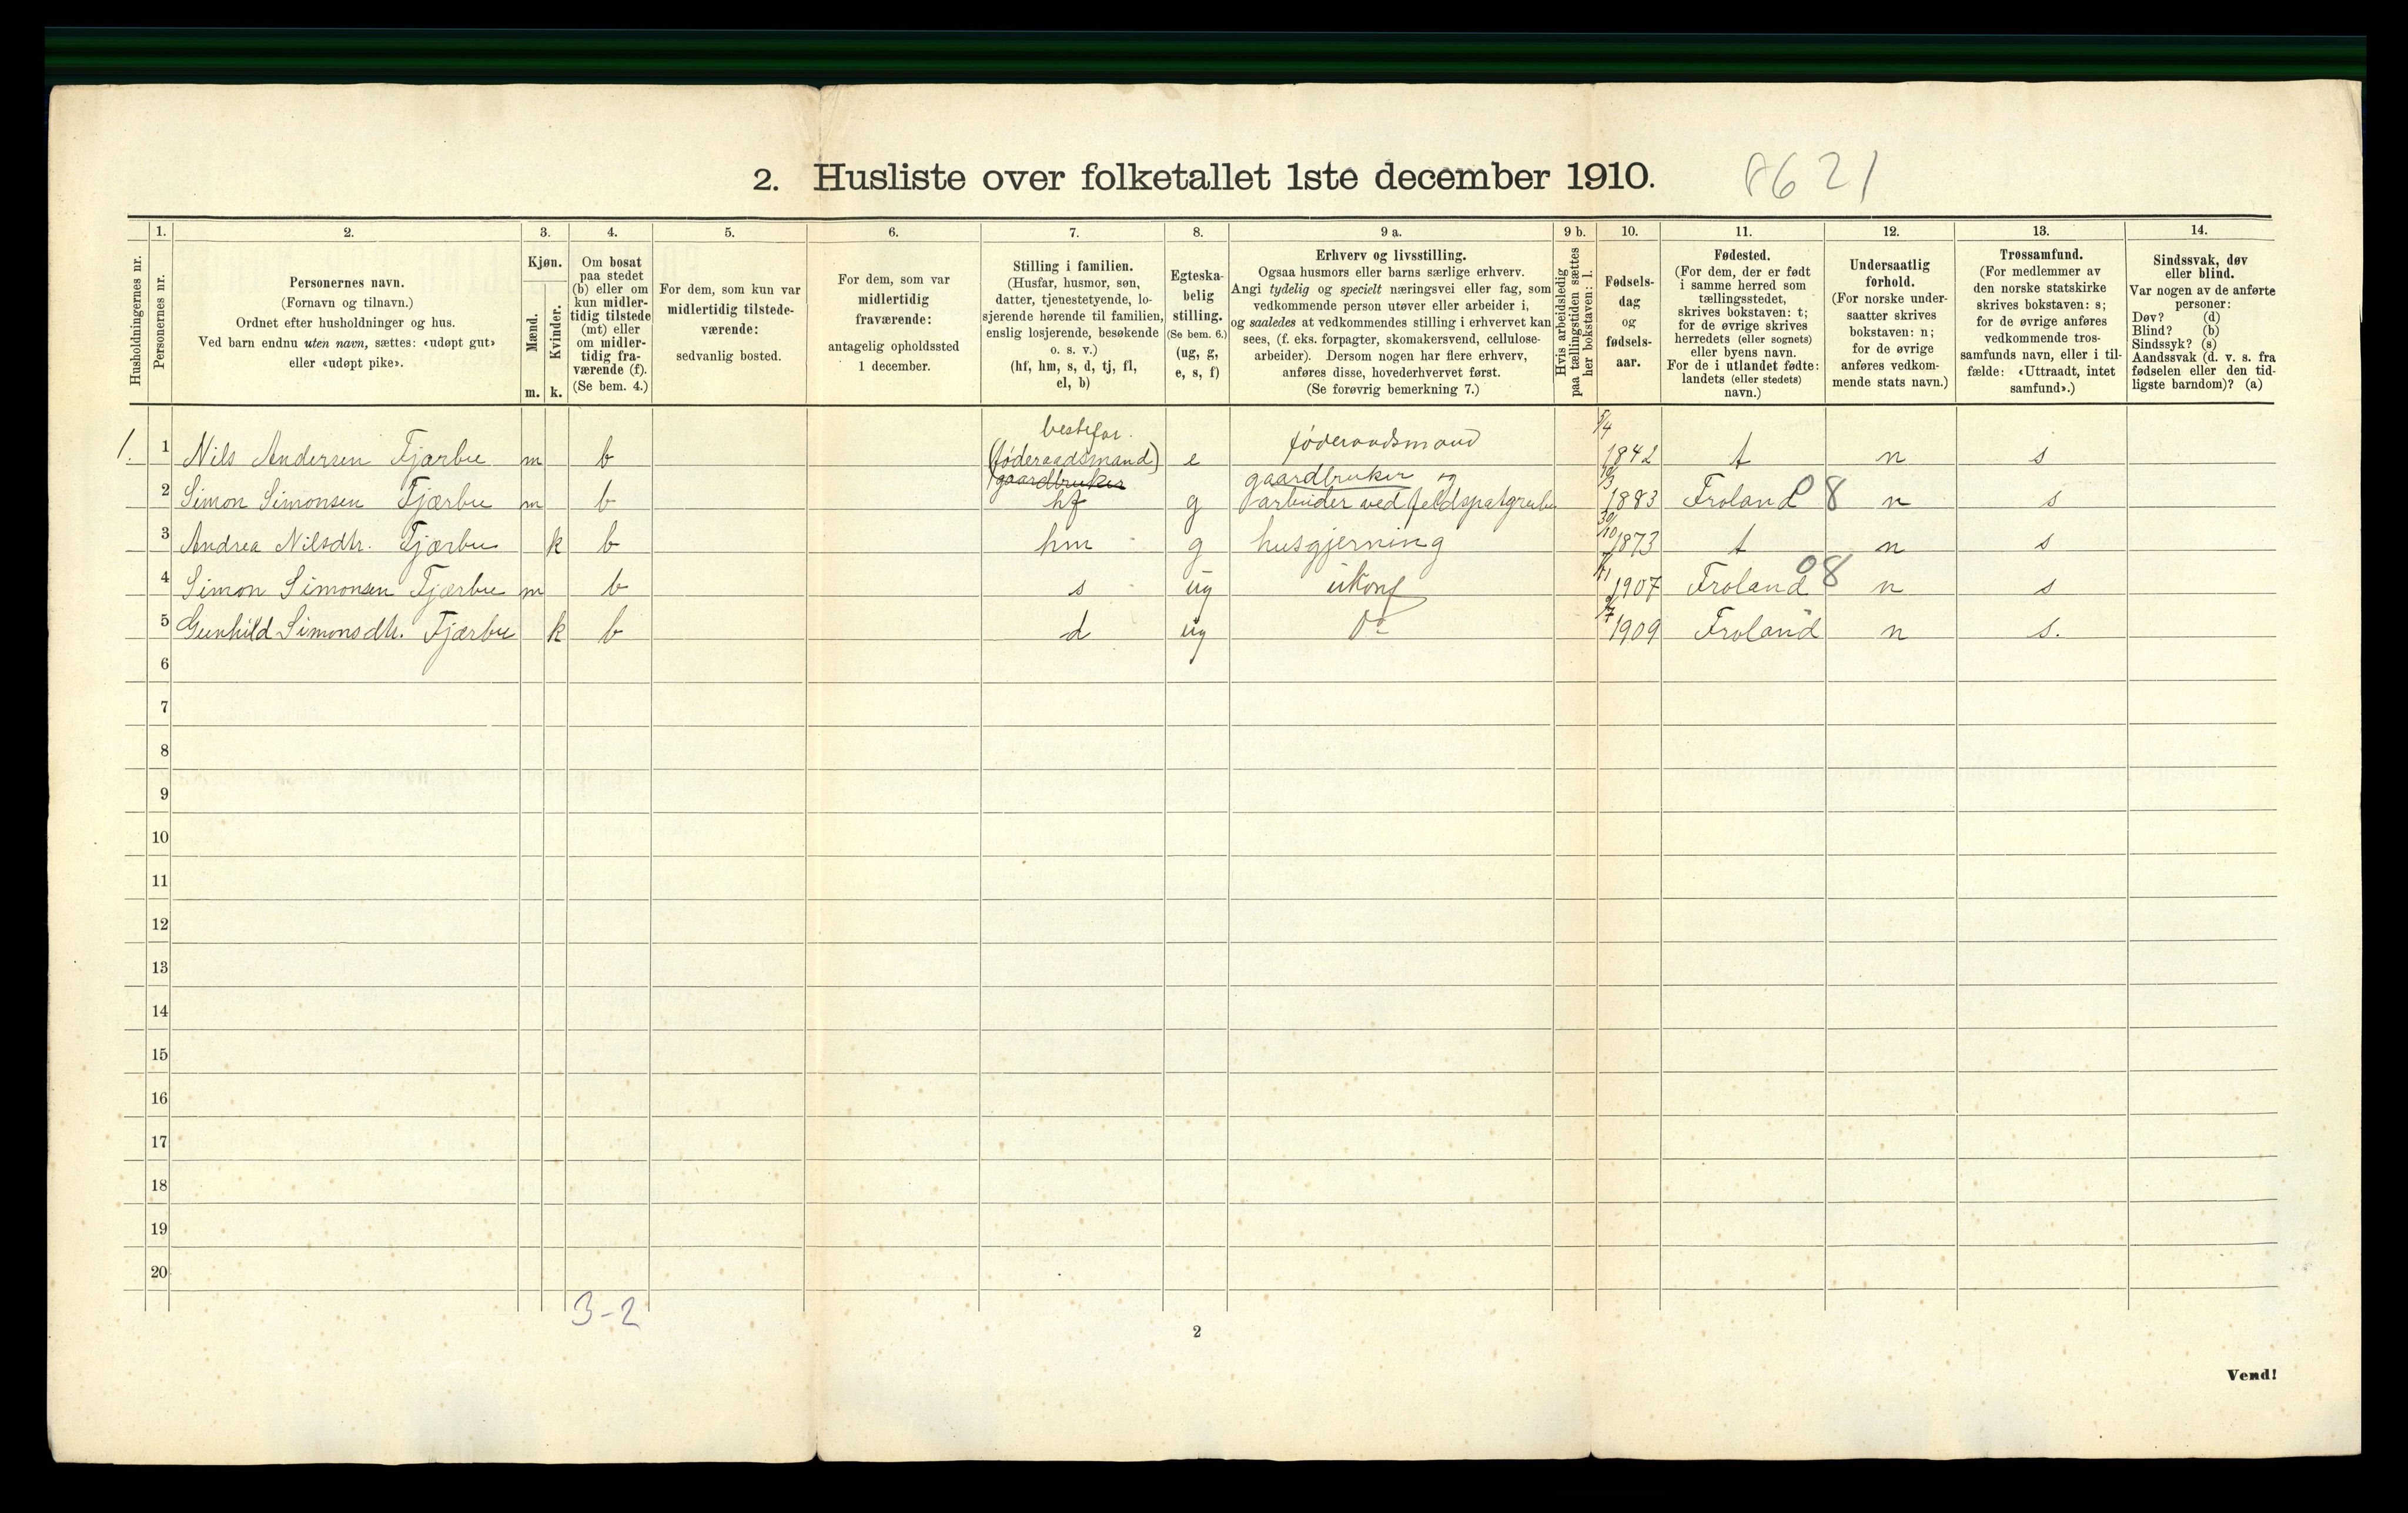 2. Husliste over folketallet 1ste december 1910. 8621
Husholdningernes nr.
1.
Personernes nr.
2.
Personernes navn.
(Fornavn og tilnavn.)
Ordnet efter husholdninger og hus.
Ved barn endnu uten navn, sættes: «udøpt gut»
eller «udøpt pike».
3.
Kjøn.
Mænd.
Kvinder.
m. k.
4.
Om bosat
paa stedet
(b) eller om
kun midler-
tidig tilstede
(mt) eller
om midler-
tidig fra-
værende (f).
(Se bem. 4.)
5.
For dem, som kun var
midlertidig tilstede-
værende:
sedvanlig bosted.
6.
For dem, som var
midlertidig
fraværende:
antagelig opholdssted
1 december.
7.
Stilling i familien.
(Husfar, husmor, søn,
datter, tjenestetyende, lo-
sjerende hørende til familien,
enslig losjerende, besøkende
o. s. v.)
(hf, hm, s, d, tj, fl,
el, b)
8.
Egteska-
belig
stilling.
(Se bem. 6.)
(ug, g,
e, s, f)
9 a.
Erhverv og livsstilling.
Ogsaa husmors eller barns særlige erhverv.
Angi tydelig og specielt næringsvei eller fag, som
vedkommende person utøver eller arbeider i,
og saaledes at vedkommendes stilling i erhvervet kan
sees, (f. eks. forpagter, skomakersvend, cellulose-
arbeider). Dersom nogen har flere erhverv,
anføres disse, hovederhvervet først.
(Se forøvrig bemerkning 7.)
9 b.
Hvis arbeidsledig
paa tællingstiden sættes
her bokstaven: l.
10.
Fødsels-
dag
og
fødsels-
aar.
11.
Fødested.
(For dem, der er født
i samme herred som
tællingsstedet,
skrives bokstaven: t;
for de øvrige skrives
herredets (eller sognets)
eller byens navn.
For de i utlandet fødte:
landets (eller stedets)
navn.)
12.
Undersaatlig
forhold.
(For norske under-
saatter skrives
bokstaven: n;
for de øvrige
anføres vedkom-
mende stats navn.)
13.
Trossamfund.
(For medlemmer av
den norske statskirke
skrives bokstaven: s;
for de øvrige anføres
vedkommende tros-
samfunds navn, eller i til-
fælde: «Uttraadt, intet
samfund».)
14.
Sindssvak, døv
eller blind.
Var nogen av de anførte
personer:
Døv? (d)
Blind? (b)
Sindssyk? (s)
Aandssvak (d. v. s. fra
fødselen eller den tid-
ligste barndom)? (a)
bestefar. 5/4
1. 1 Nils Andersen Fjærbu m b (føderaadsmand) e føderaadsmand 1842 t n s
gaardbruker gaardbruker og
2 Simon Simonsen Fjærbu m b hf g arbeider ved feldspatgrube 1883 Froland 08 n s
30/10
3 Andrea Nilsdtr. Fjærbu k b hm g husgjerning 1873 t n s
4 Simon Simonsen Fjærbu m b s ug ukonf 1907 Froland 08 n s
5 Gunhild Simonsdtr. Fjærbu k b d ug Do 1909 Froland n s.
6
7
8
9
10
11
12
13
14
15
16
17
18
19
20
3-2
2
Vend!